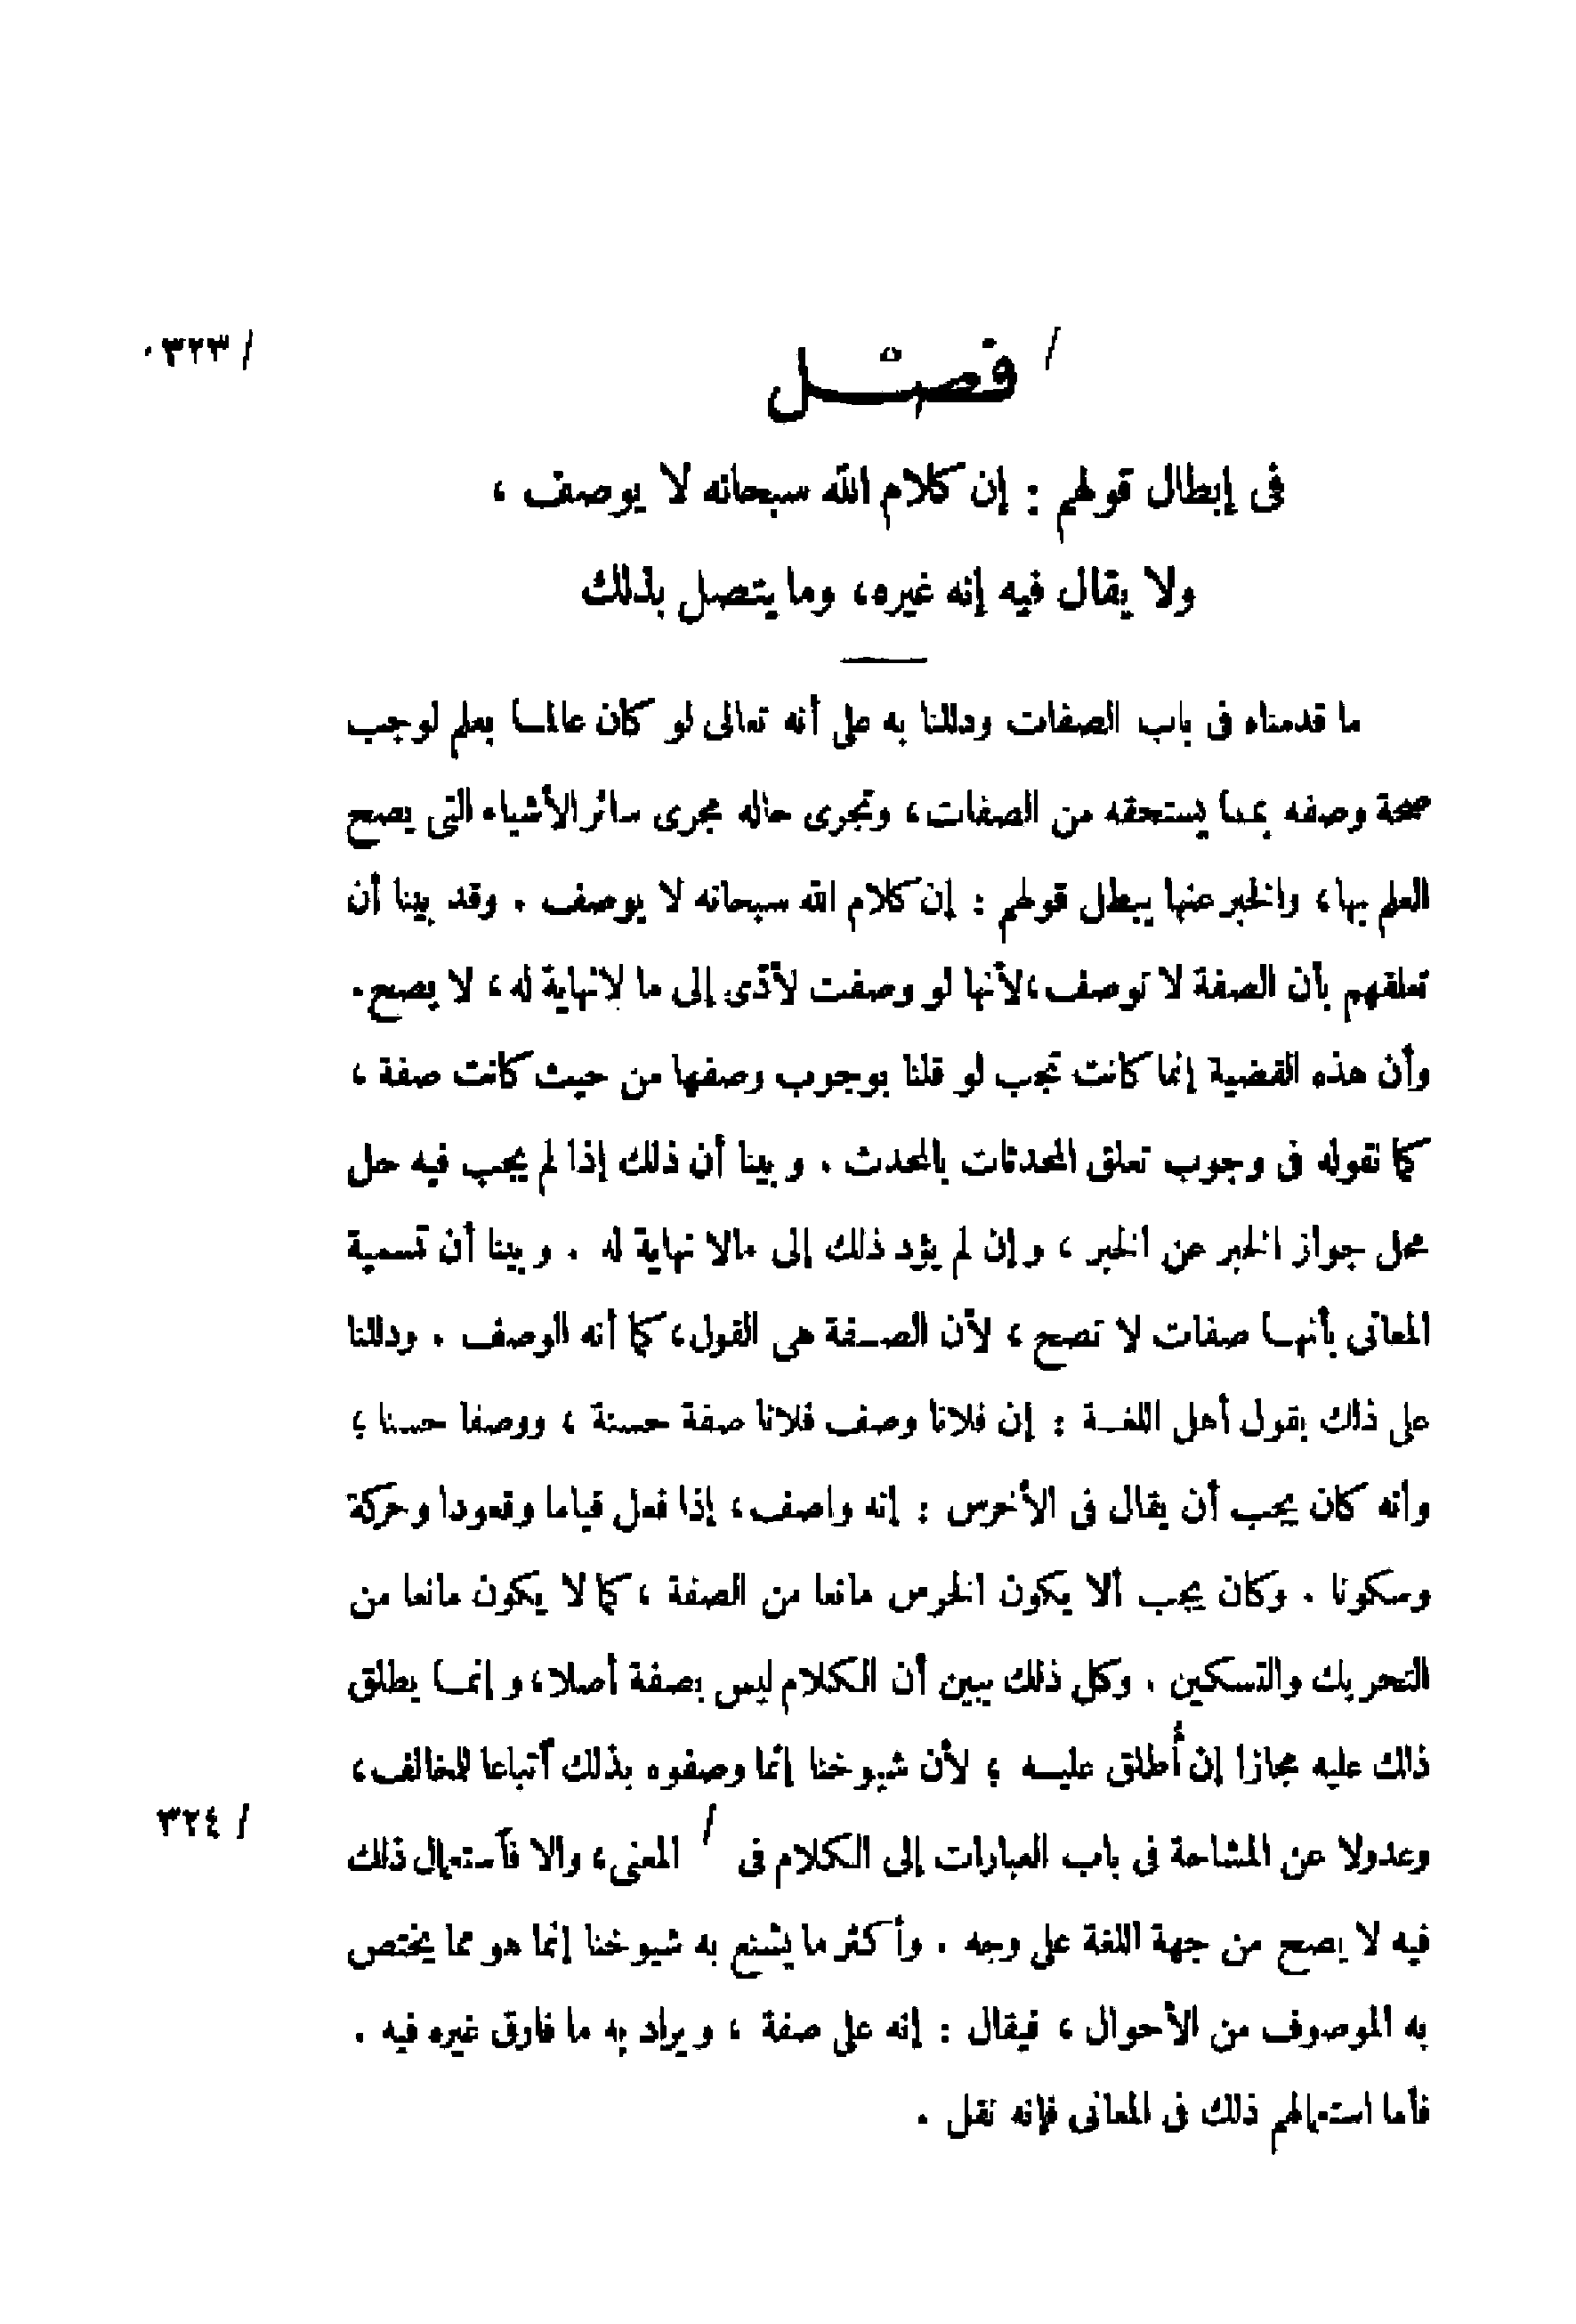 / فصل
/ ٣٢٣ ٠
فى إبطال قولهم : إن كلام الله سبحانه لا يوصف ،
ولا يقال فيه إنه غيره، وما يتصل بذلك
ما قدمناه فى باب الصفات ودللنا به على أنه تعالى لو كان عالمـا بعلم لوجب
صحة وصفه بمـا يستحقه من الصفات، وتجرى حاله مجرى سائر الأشياء التى يصح
العلم بها، والخبر عنها يبطل قولهم : إن كلام الله سبحانه لا يوصف . وقد بينا أن
تعلقهم بأن الصفة لا توصف،لأنها لو وصفت لأدّى إلى ما لانهاية له، لا يصح.
وأن هذه القضية إنما كانت تجب لو قلنا بوجوب وصفها من حيث كانت صفة ،
كما نقوله فى وجوب تعلق المحدثات بالمحدث . وبينا أن ذلك إذا لم يجب فيه حل
محل جواز الخبر عن الخبر ، وإن لم يؤد ذلك إلى مالا نهاية له . وبينا أن تسمية
المعانى بأنهـا صفات لا تصح ، لأن الصـفة هى القول، كما أنه الوصف . ودللنا
على ذلك بقول أهل اللغـة : إن فلانا وصف فلانا صفة حسنة ، ووصفا حسنا ؛
وأنه كان يجب أن يقال فى الأخرس : إنه واصف، إذا فعل قياما وقعودا وحركة
وسكونا . وكان يجب ألا يكون الخرس مانعا من الصفة ، كما لا يكون مانعا من
التحريك والتسكين . وكل ذلك يبين أن الكلام ليس بصفة أصلا، وإنمـا يطلق
ذلك عليه مجازا إن أُطلق عليـه ؛ لأن شيوخنا إنما وصفوه بذلك آتباعا للخالف،
وعدولا عن المشاحة فى باب العبارات إلى الكلام فى / المعنى، والا فآستعمال ذلك
/ ٣٢٤
فيه لا يصح من جهة اللغة على وجه . وأكثر ما يشنع به شيوخنا إنما هو مما يختص
به الموصوف من الأحوال ، فيقال : إنه على صفة ، ويراد به ما فارق غيره فيه .
فأما استعمالهم ذلك فى المعانى فإنه نقل .